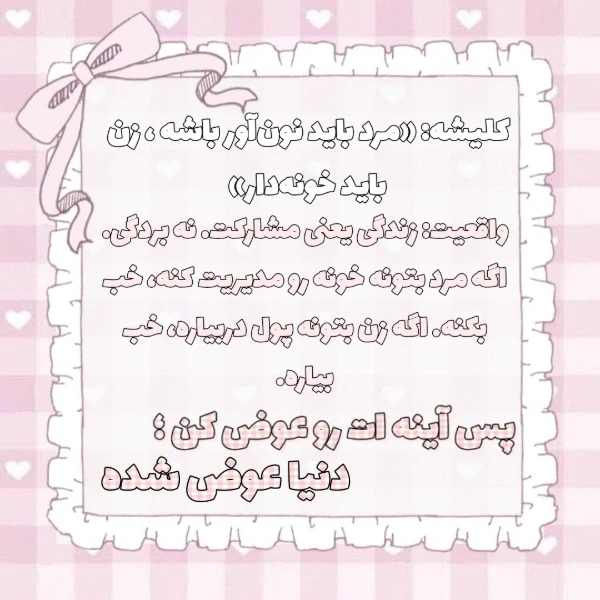 کلیشه: «مرد باید نون‌آور باشه ، زن
باید خونه‌دار»
واقعیت: زندگی یعنی مشارکت. نه بردگی.
اگه مرد بتونه خونه رو مدیریت کنه، خب
بکنه. اگه زن بتونه پول دربیاره، خب
بیاره.
پس آینه ات رو عوض کن ؛
دنیا عوض شده